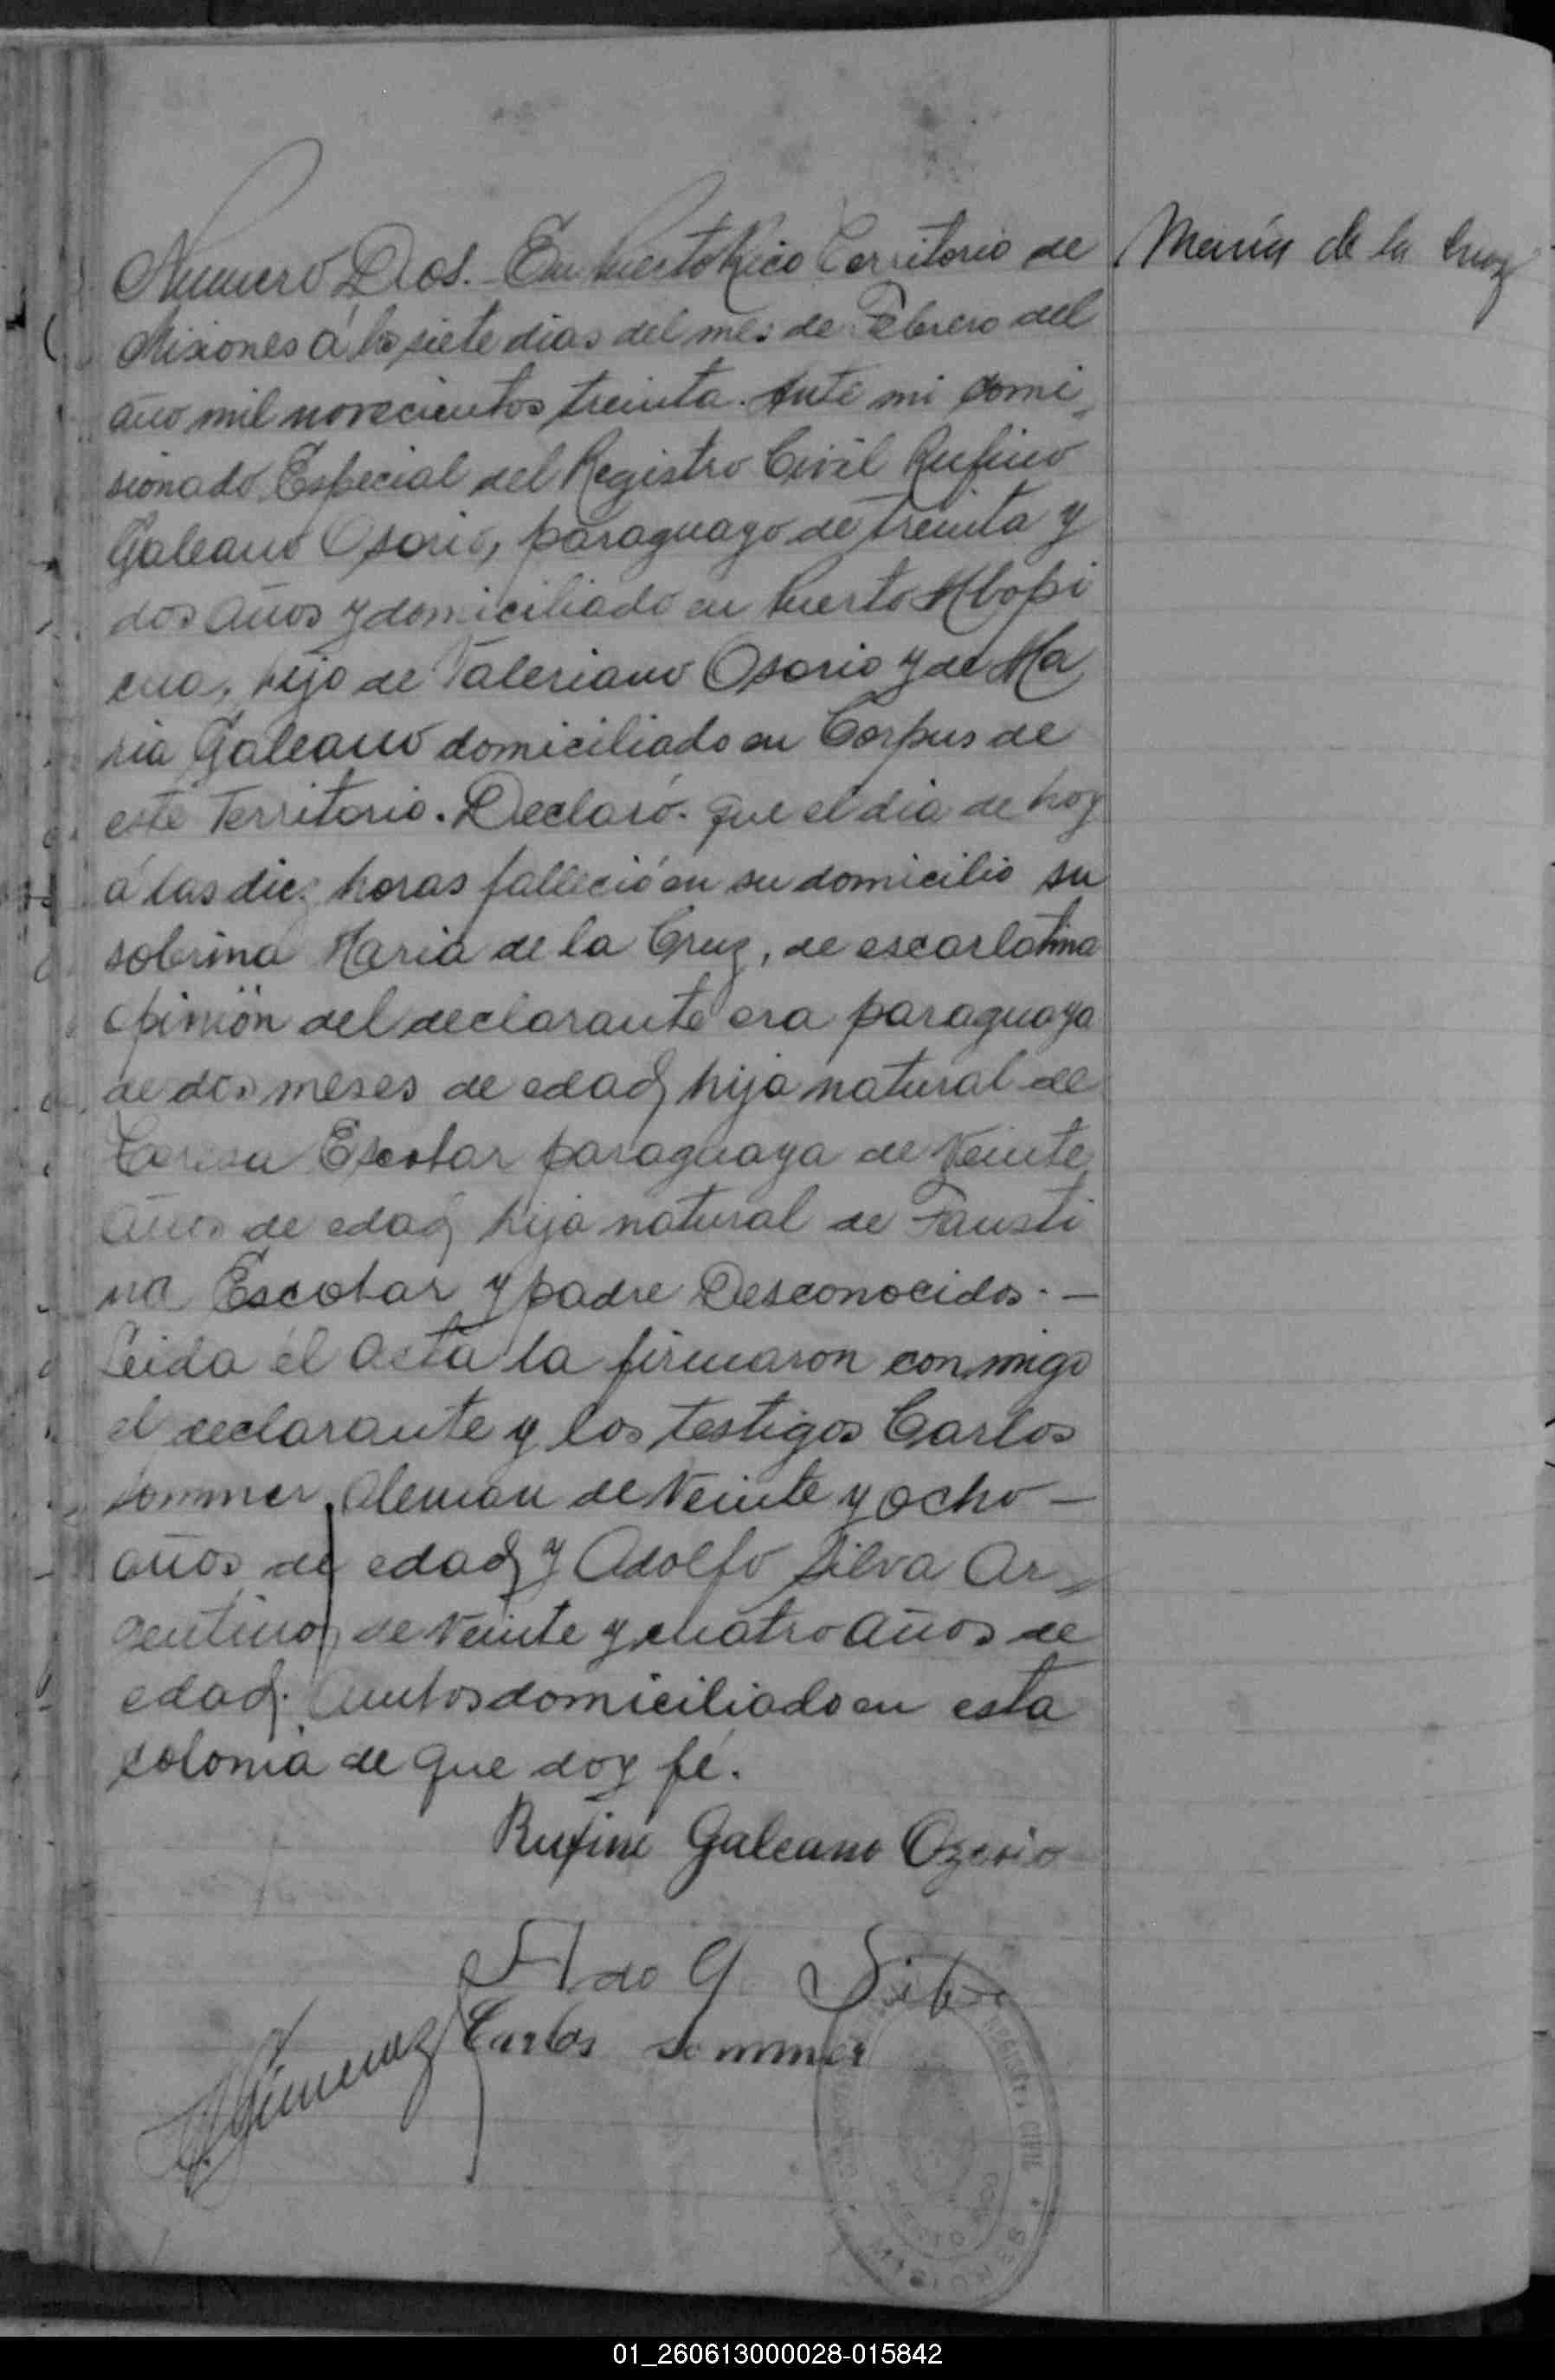 Numero Dos. - En Puerto Rico Territorio de
Misiones á los siete dias del mes de Febrero del
año mil novecientos treinta. Ante mi Comi
sionado Especial del Registro Civil Rufino
Galeano Osorio, paraguayo de treinta y
dos años y domiciliado en Puerto Mbopi
cua, hijo de Valeriano Osorio y de Ma
ria Galeano domiciliado en Corpus de
este Territorio. Declaró. que el dia de hoy
á las diez horas falleció en su domicilio su
sobrina Maria de la Cruz, de escarlatina
opinión del declarante era paraguaya
de dos meses de edad, hija natural de
Escobar paraguaya de veinte
años de edad, hija natural de Fausti
na Escobar y padre Desconocidos. -
Leida el acta la firmaron con migo
el declarante y los testigos Carlos
Sommer, Aleman de veinte y ocho -
años de edad, y Adolfo Silva Ar
gentino, de veinte y cuatro años de
edad. Ambos domiciliado en esta
colonia de que doy fé.
Maria de la Cruz
Rufino Galeano Ozorio
Ado G Silva
Carlos Sommer
Gimenez
REGISTRO CIVIL
01_260613000028-015842